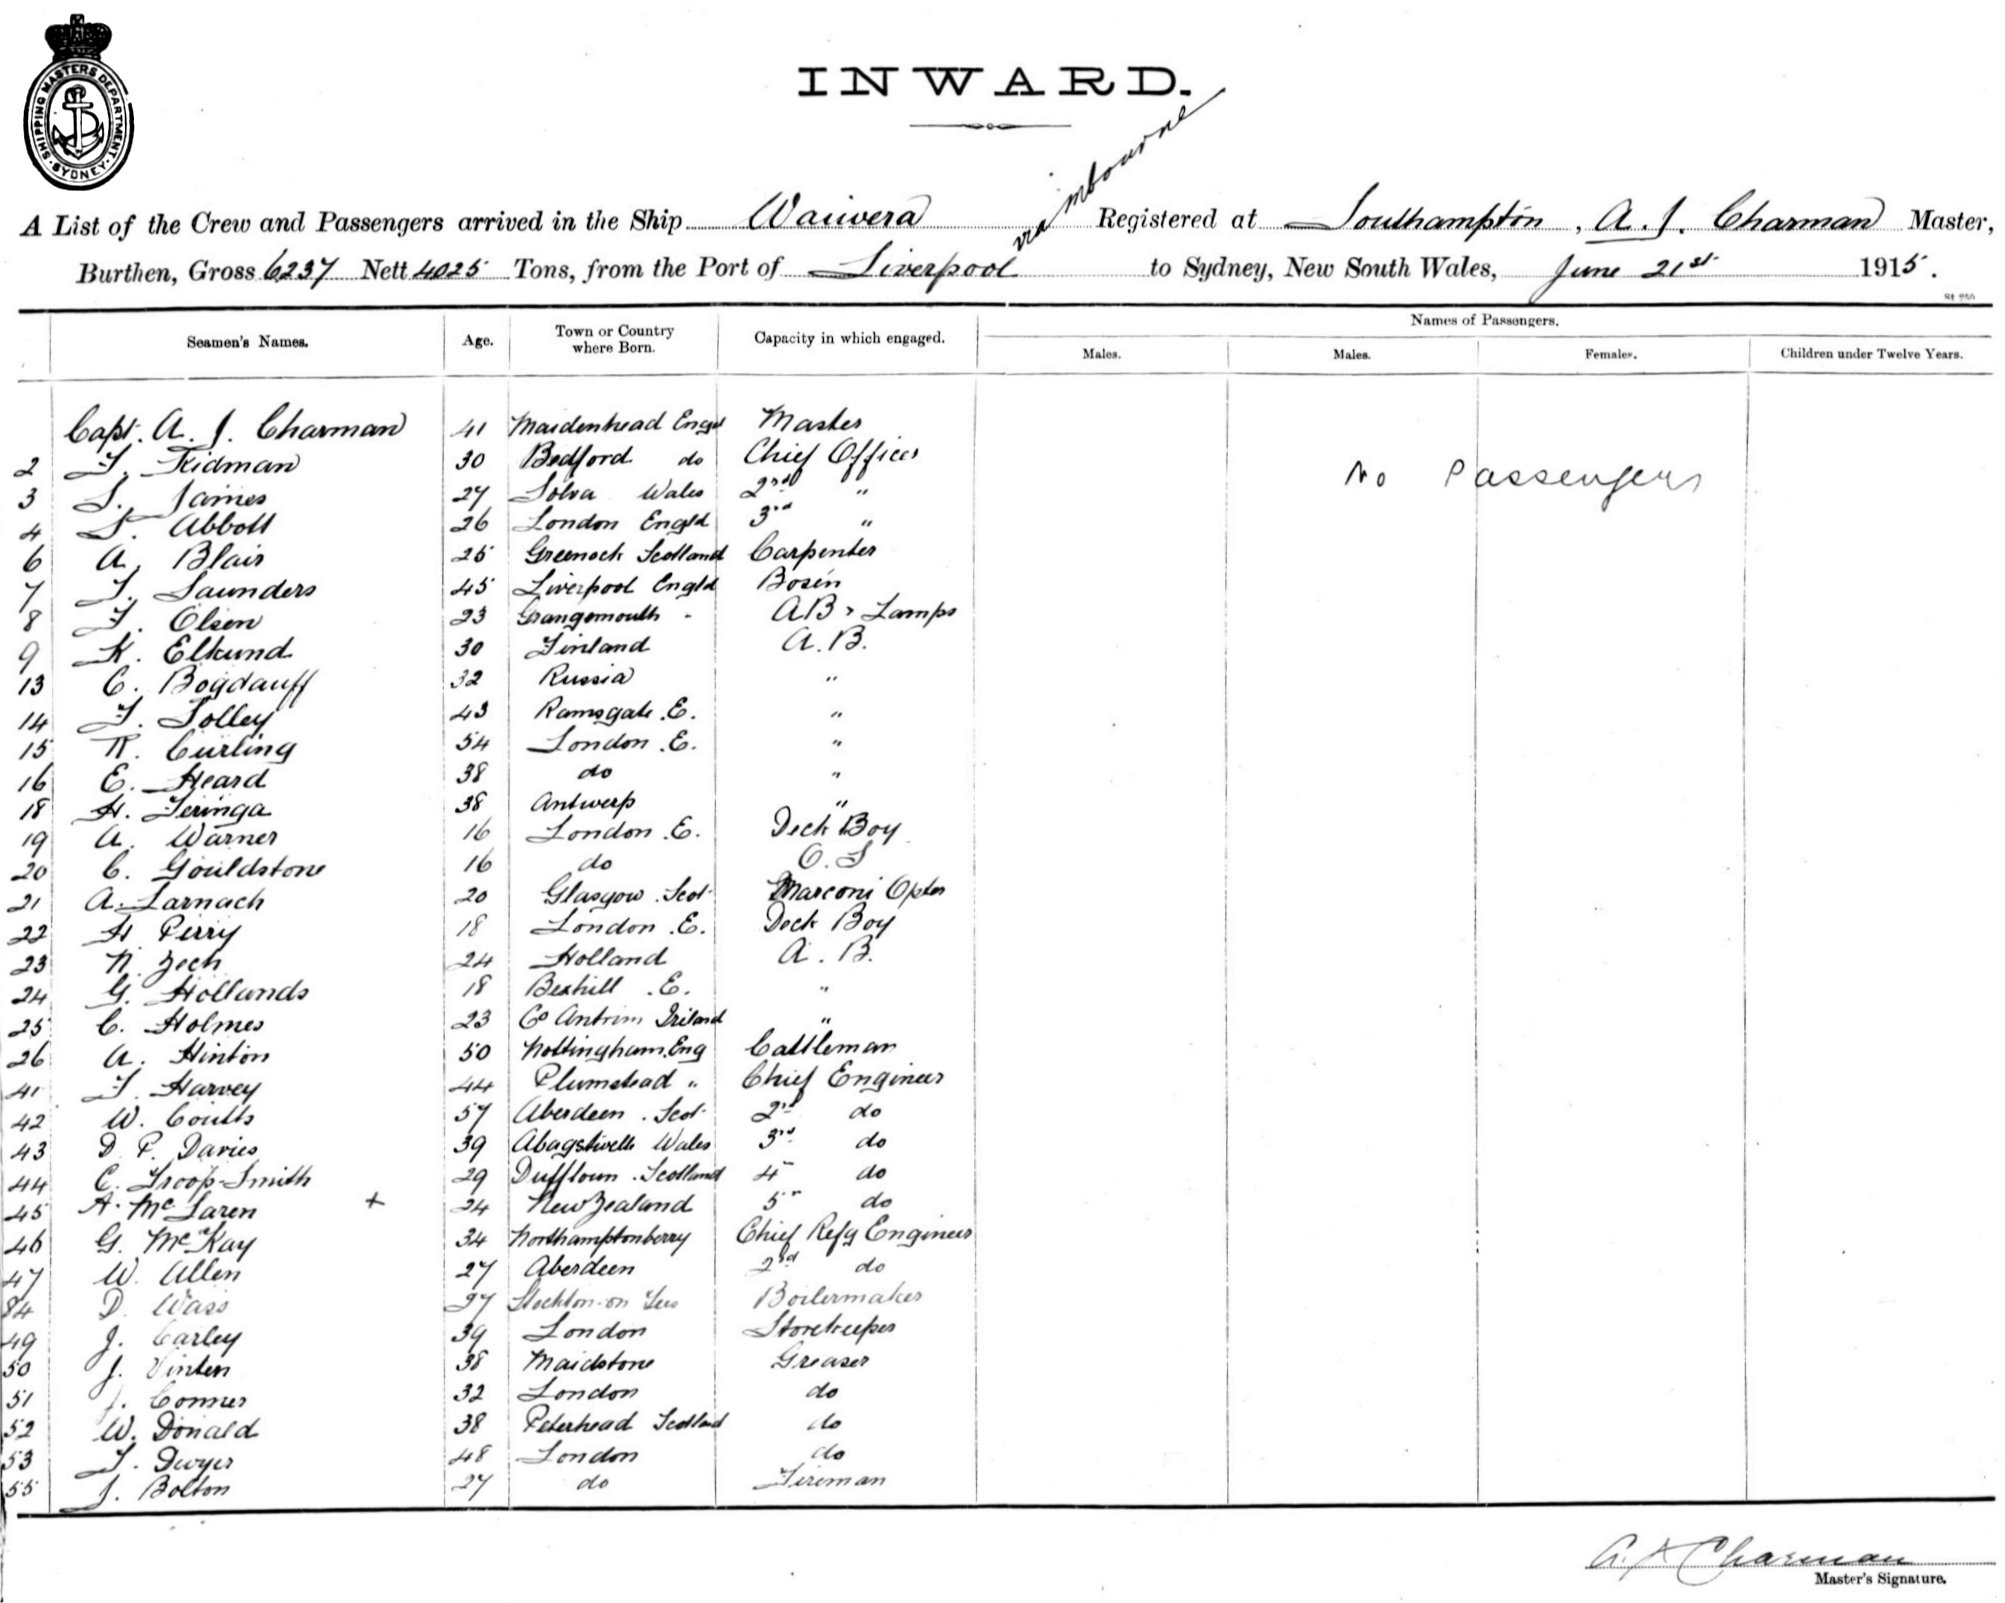 SHIPPING MASTERS DEPARTMENT. SYDNEY
INWARD.
via Mbourne
A List of the Crew and Passengers arrived in the Ship Waiwera Registered at Southampton, A. J. Charman Master,
Burthen, Gross 6237 Nett 4025 Tons, from the Port of Liverpool to Sydney, New South Wales, June 21st 1915.
Seamen's Names. Age. Town or Country where Born. Capacity in which engaged. Names of Passengers.
Males. Males. Females. Children under Twelve Years.
Capt. A. J. Charman 41 Maidenhead Engd Master
2 Kidman 30 Bedford do Chief Officer
No Passengers
3 James 27 Solva Wales 2nd "
4 Abbott 26 London Engld 3rd "
6 A. Blair 25 Greenock Scotland Carpenter
7 Saunders 45 Liverpool Engld Bosen
8 Olsen 23 Grangemouth - AB & Lamps
9 K. Elkund 30 Finland A.B.
13 C. Bogdauff 32 Russia "
14 Solley 43 Ramsgate .E. "
15 R. Curling 54 London .E. "
16 E. Heard 38 do "
18 H. Teringa 38 Antwerp "
19 A. Warner 16 London .E. Deck Boy
20 C. Gouldstone 16 do O.S
21 A. Larnach 20 Glasgow . Scot. Marconi Opter
22 H Perry 18 London .E. Deck Boy
23 N. Zech 24 Holland A. B.
24 G. Hollands 18 Bexhill .E. "
25 C. Holmes 23 Co Antrim Ireland "
26 A. Hinton 50 Nottingham. Eng Cattleman
41 Harvey 44 Plumstead " Chief Engineer
42 W. Coutts 57 Aberdeen . Scot. 2nd do
43 D. P. Davies 39 Wales 3rd do
44 C. Troop-Smith 29 Dufftown . Scotland 4" do
45 A. McLaren + 24 New Zealand 5" do
46 G. McKay 34 Northamptonberry Chief Refg Engineer
47 W. Allen 27 Aberdeen 2nd do
84 D. Wass 27 Stockton-on Tees Boilermaker
49 J. Carley 39 London Storekeeper
50 J. Vinten 38 Maidstone Greaser
51 J. Conner 32 London do
52 W. Donald 38 Peterhead Scotland do
53 Dwyer 48 London do
55 J. Bolton 27 do Fireman
A. J. Charman
Master's Signature.